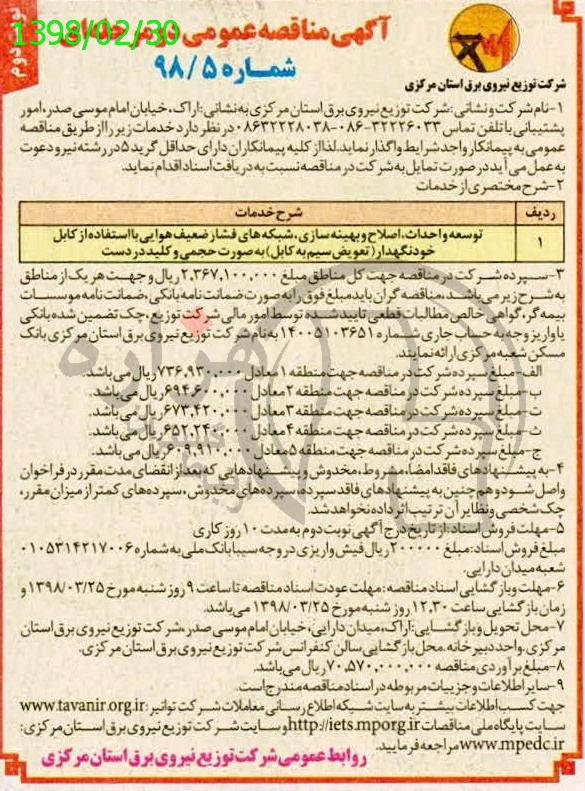 1398/02/30
آگهی مناقصه عمومی دو مرحله‌ای
شماره ۹۸/۵
نوبت دوم
شرکت توزیع نیروی برق استان مرکزی
۱-نام شرکت و نشانی: شرکت توزیع نیروی برق استان مرکزی به نشانی: اراک، خیابان امام موسی صدر، امور
پشتیبانی با تلفن تماس ۳۲۲۲۶۰۳۳-۰۸۶ ۰۸۶۳۲۲۲۸۰۳۸ در نظر دارد خدمات زیر را از طریق مناقصه
عمومی به پیمانکار واجد شرایط واگذار نماید. لذا از کلیه پیمانکاران دارای حداقل گرید ۵ در رشته نیرو دعوت
به عمل می آید در صورت تمایل به شرکت در مناقصه نسبت به دریافت اسناد اقدام نماید.
۲-شرح مختصری از خدمات
ردیف شرح خدمات
۱ توسعه و احداث، اصلاح و بهینه سازی، شبکه های فشار ضعیف هوایی با استفاده از کابل
خودنگهدار (تعویض سیم به کابل) به صورت حجمی و کلید در دست
۳-سپرده شرکت در مناقصه جهت کل مناطق مبلغ ۲,۳۶۷,۱۰۰,۰۰۰ ریال و جهت هر یک از مناطق
به شرح زیر می باشد، مناقصه گران باید مبلغ فوق را به صورت ضمانت نامه بانکی، ضمانت نامه موسسات
بیمه گر، گواهی خالص مطالبات قطعی تایید شده توسط امور مالی شرکت توزیع، چک تضمین شده بانکی
یا واریز وجه به حساب جاری شماره ۱۴۰۰۵۱۰۳۶۵۱ به نام شرکت توزیع نیروی برق استان مرکزی بانک
مسکن شعبه مرکزی ارائه نمایند.
الف-مبلغ سپرده شرکت در مناقصه جهت منطقه ۱ معادل ۷۳۶,۹۳۰,۰۰۰ ریال می باشد.
ب-مبلغ سپرده شرکت در مناقصه جهت منطقه ۲ معادل ۶۹۴,۶۰۰,۰۰۰ ریال می باشد.
ت-مبلغ سپرده شرکت در مناقصه جهت منطقه ۳ معادل ۶۷۳,۴۲۰,۰۰۰ ریال می باشد.
ث-مبلغ سپرده شرکت در مناقصه جهت منطقه ۴ معادل ۶۵۲,۲۴۰,۰۰۰ ریال می باشد.
ج-مبلغ سپرده شرکت در مناقصه جهت منطقه ۵ معادل ۶۰۹,۹۱۰,۰۰۰ ریال می باشد.
۴-به پیشنهادهای فاقد امضاء، مشروط، مخدوش و پیشنهادهایی که بعد از انقضای مدت مقرر در فراخوان
واصل شود و هم چنین به پیشنهادهای فاقد سپرده، سپرده های مخدوش، سپرده های کمتر از میزان مقرر،
چک شخصی و نظایر آن ترتیب اثر داده نخواهد شد.
۵-مهلت فروش اسناد: از تاریخ درج آگهی نوبت دوم به مدت ۱۰ روز کاری
مبلغ فروش اسناد: مبلغ ۲۰۰۰۰۰ ریال فیش واریزی در وجه سیبا بانک ملی به شماره ۰۱۰۵۳۱۴۲۱۷۰۰۶
شعبه میدان دارایی.
۶-مهلت و بازگشایی اسناد مناقصه: مهلت عودت اسناد مناقصه تا ساعت ۹ روز شنبه مورخ ۱۳۹۸/۰۳/۲۵ و
زمان بازگشایی ساعت ۱۲,۳۰ روز شنبه مورخ ۱۳۹۸/۰۳/۲۵ می باشد.
۷-محل تحویل و بازگشایی: اراک، میدان دارایی، خیابان امام موسی صدر، شرکت توزیع نیروی برق استان
مرکزی، واحد دبیرخانه. محل بازگشایی سالن کنفرانس شرکت توزیع نیروی برق استان مرکزی.
۸-مبلغ برآوردی مناقصه ۷۰,۵۷۰,۰۰۰,۰۰۰ ریال می باشد.
۹-سایر اطلاعات و جزییات مربوطه در اسناد مناقصه مندرج است.
جهت کسب اطلاعات بیشتر به سایت شبکه اطلاع رسانی معاملات شرکت توانیر: www.tavanir.org.ir
سایت پایگاه ملی مناقصات http://iets.mporg.ir و سایت شرکت توزیع نیروی برق استان مرکزی:
www.mpedc.ir مراجعه فرمایید.
روابط عمومی شرکت توزیع نیروی برق استان مرکزی